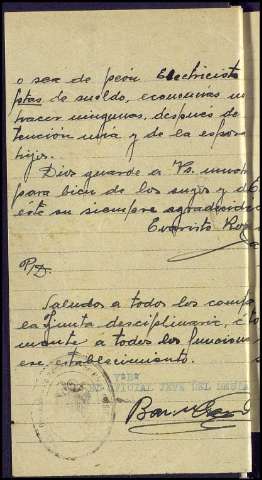 o sea de peón Electricista
ptas de sueldo, economias n
hacer ningunas, después de
tención mia y de la espos
hijos.
Dios guarde a Vs. much
para bien de los suyos y d
éste su siempre agradecido
Evaristo
P/D.
Saludos a todos los comp
la Junta desciplinaric,
mente a todos los funciona
ese establecimiento.
VºBº
OFICIAL JEFE DEL